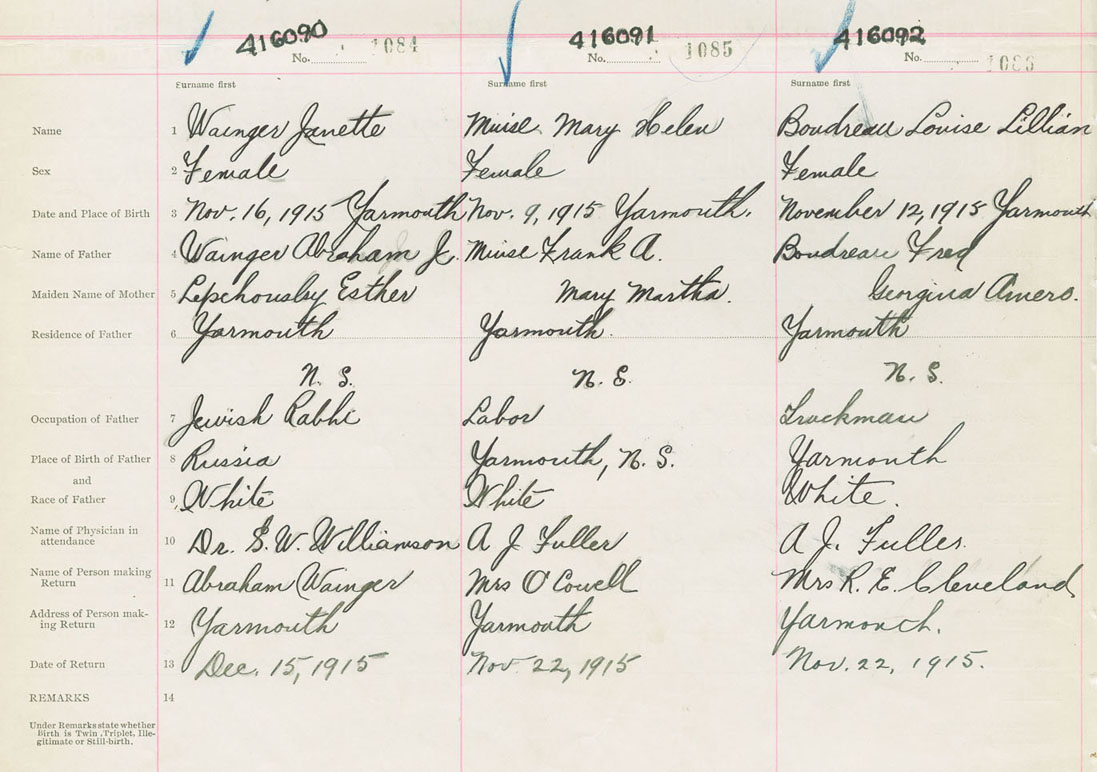 416090 416091 416092
No. 1084 No. 1085 No. 1086
Surname first Surname first Surname first
Name 1 Wainger Janette Muise Mary Helen Boudreau Louise Lillian
Sex 2 Female Female Female
Date and Place of Birth 3 Nov. 16, 1915 Yarmouth Nov. 9, 1915 Yarmouth. November 12, 1915 Yarmouth
Name of Father 4 Wainger Abraham J. Muise Frank A. Boudreau Fred
Maiden Name of Mother 5 Esther Mary Martha. Georgina Amero.
Residence of Father 6 Yarmouth Yarmouth. Yarmouth
N. S. N. S. N. S.
Occupation of Father 7 Jewish Rabbi Labor Truckman
Place of Birth of Father 8 Russia Yarmouth, N. S. Yarmouth
and
Race of Father 9 White White White.
Name of Physician in
attendance 10 Dr. S. W. Williamson A J Fuller A J. Fuller.
Name of Person making
Return 11 Abraham Wainger Mrs O'Connell Mrs R. E. Cleveland
Address of Person mak-
ing Return 12 Yarmouth Yarmouth Yarmouth.
Date of Return 13 Dec. 15, 1915 Nov 22, 1915 Nov. 22, 1915.
REMARKS 14
Under Remarks state whether
Birth is Twin, Triplet, Ille-
gitimate or Still-birth.